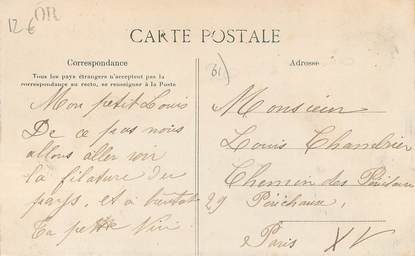 12 €
CARTE POSTALE
Correspondance
Tous les pays étrangers n'acceptent pas la
correspondance au recto, se renseigner à la Poste
Mon petit Louis
De ce pas nous
allons aller voir
la filature du
pays, et à bientot
Ta petite
Adresse
61)
Monsieur
Louis Chandrier
Chemin des
29
Paris XV